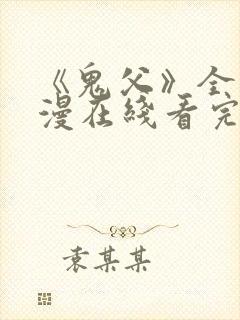 《鬼父》全
漫在线看完
袁某某